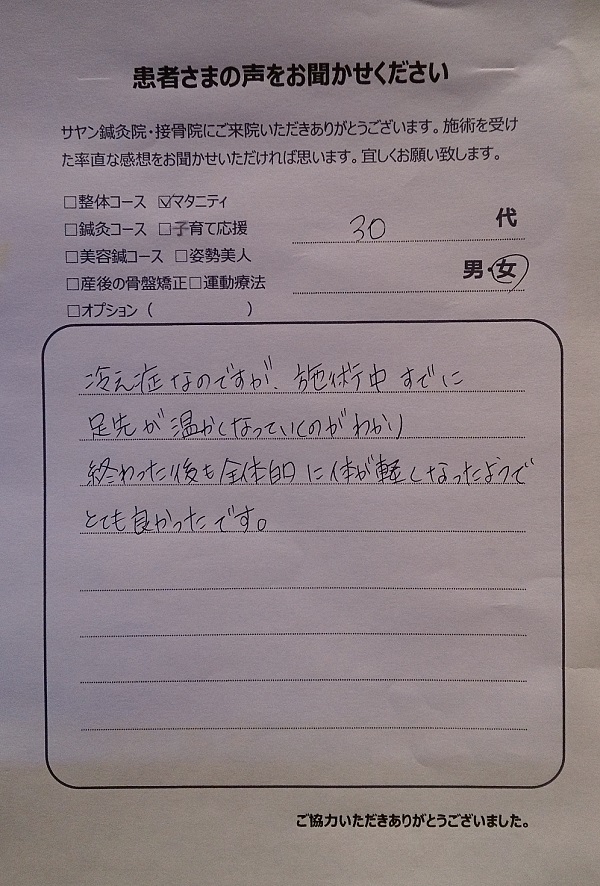 患者さまの声をお聞かせください
サヤン鍼灸院・接骨院にご来院いただきありがとうございます。施術を受け
た率直な感想をお聞かせいただければ思います。宜しくお願い致します。
□整体コース ☑マタニティ
□鍼灸コース □子育て応援
□美容鍼コース □姿勢美人
□産後の骨盤矯正□運動療法
□オプション（　　　　　）
30 代
男・女
冷え症なのですが、施術中すでに
足先が温かくなっていくのがわかり
終わった後も全体的に体が軽くなったようで
とても良かったです。
ご協力いただきありがとうございました。